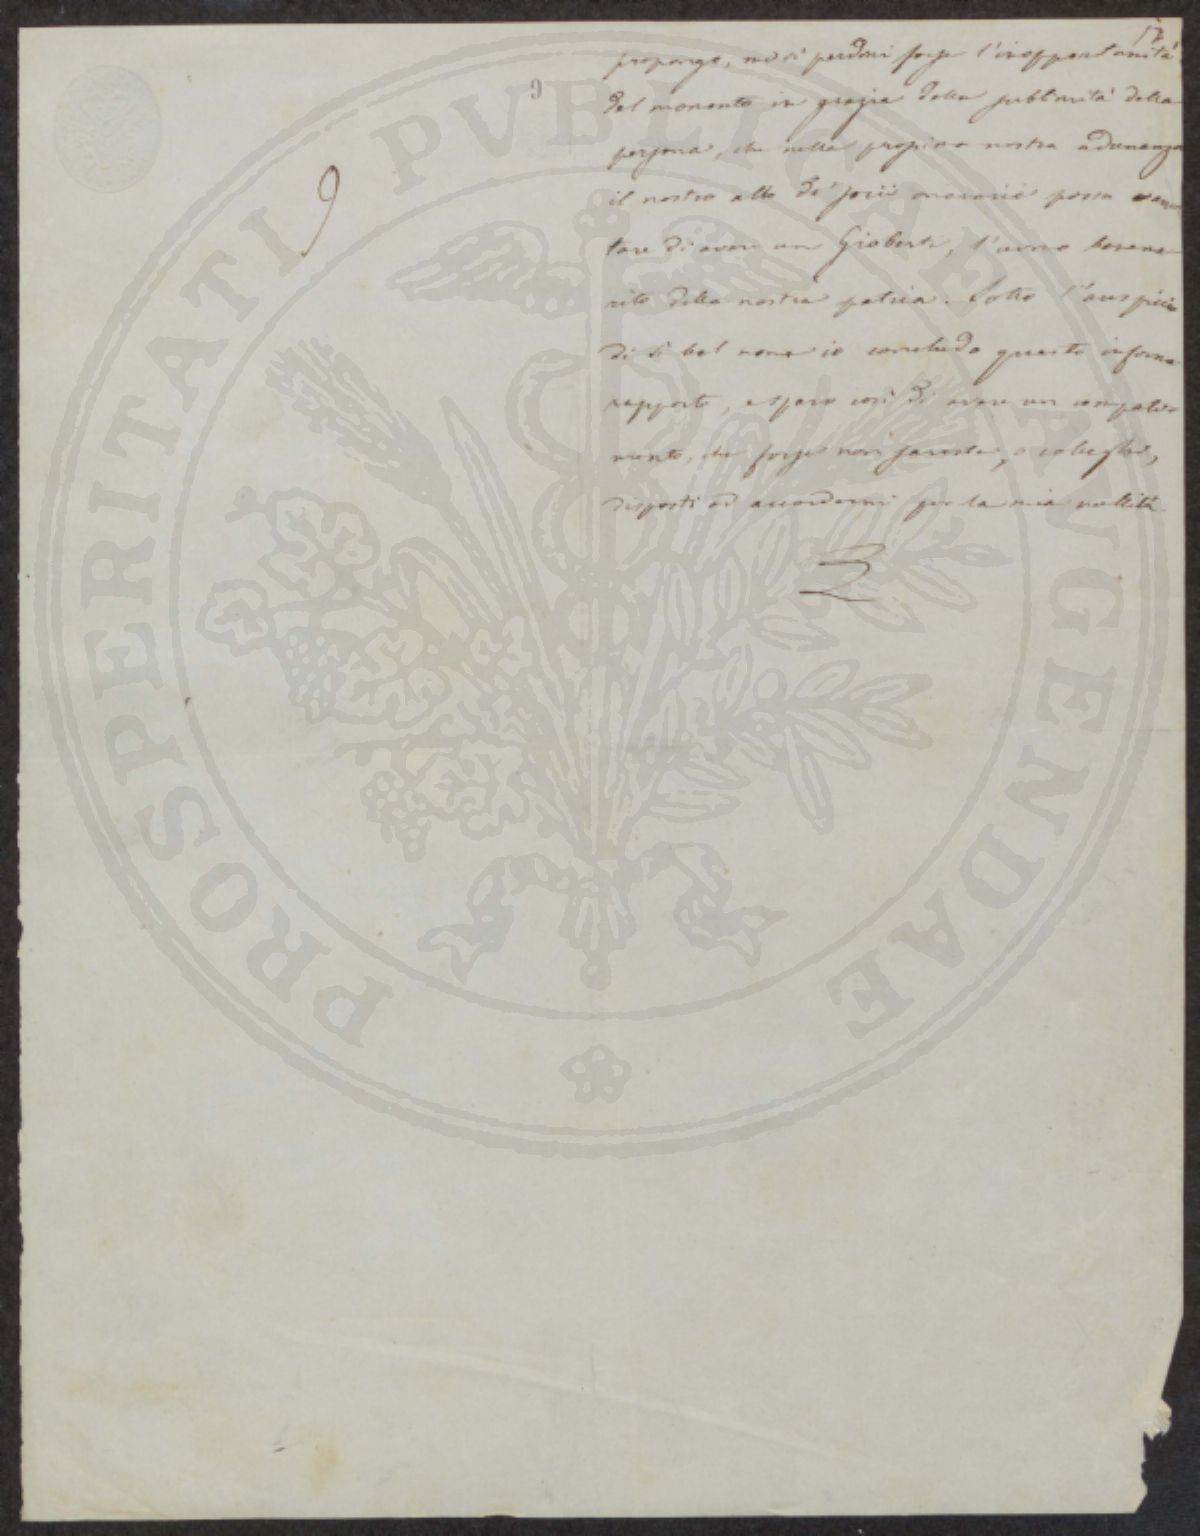 17
propongo, mi si perdoni forse l'inopportunità
9
del momento in grazia della sublimità della
persona, che nella prossima nostra adunanza
9
il nostro albo de' socii onorarii possa van-
tare di avere un Gioberti, l'uomo beneme-
rito della nostra patria. Sotto l'auspicio
di sì bel nome io conchiudo questo informe
rapporto, e spero così di avere un compati-
mento, che forse non sareste, o colleghi,
disposti ad accordarmi per la mia nullità.
PROSPERITATI PVBLICAE AVGENDAE